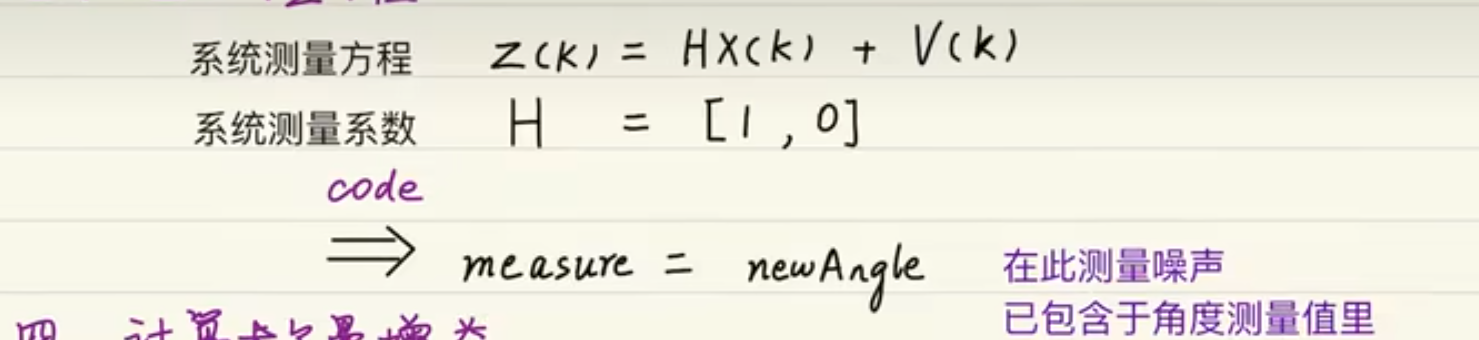 系统测量方程 Z(k) = HX(k) + V(k)
系统测量系数 H = [1 , 0]
code
⇒ measure = newAngle 在此测量噪声
已包含于角度测量值里
四 计算卡尔曼增益